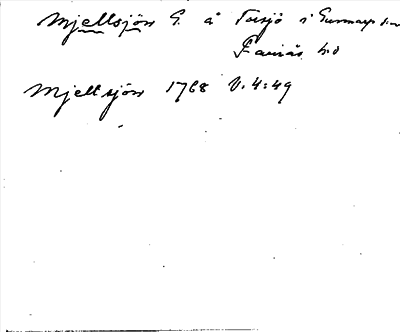 Mjellsjön G. å Torsjö i Gunnarps sn
Faurås hd
Mjellsjön 1768 V. 4:49